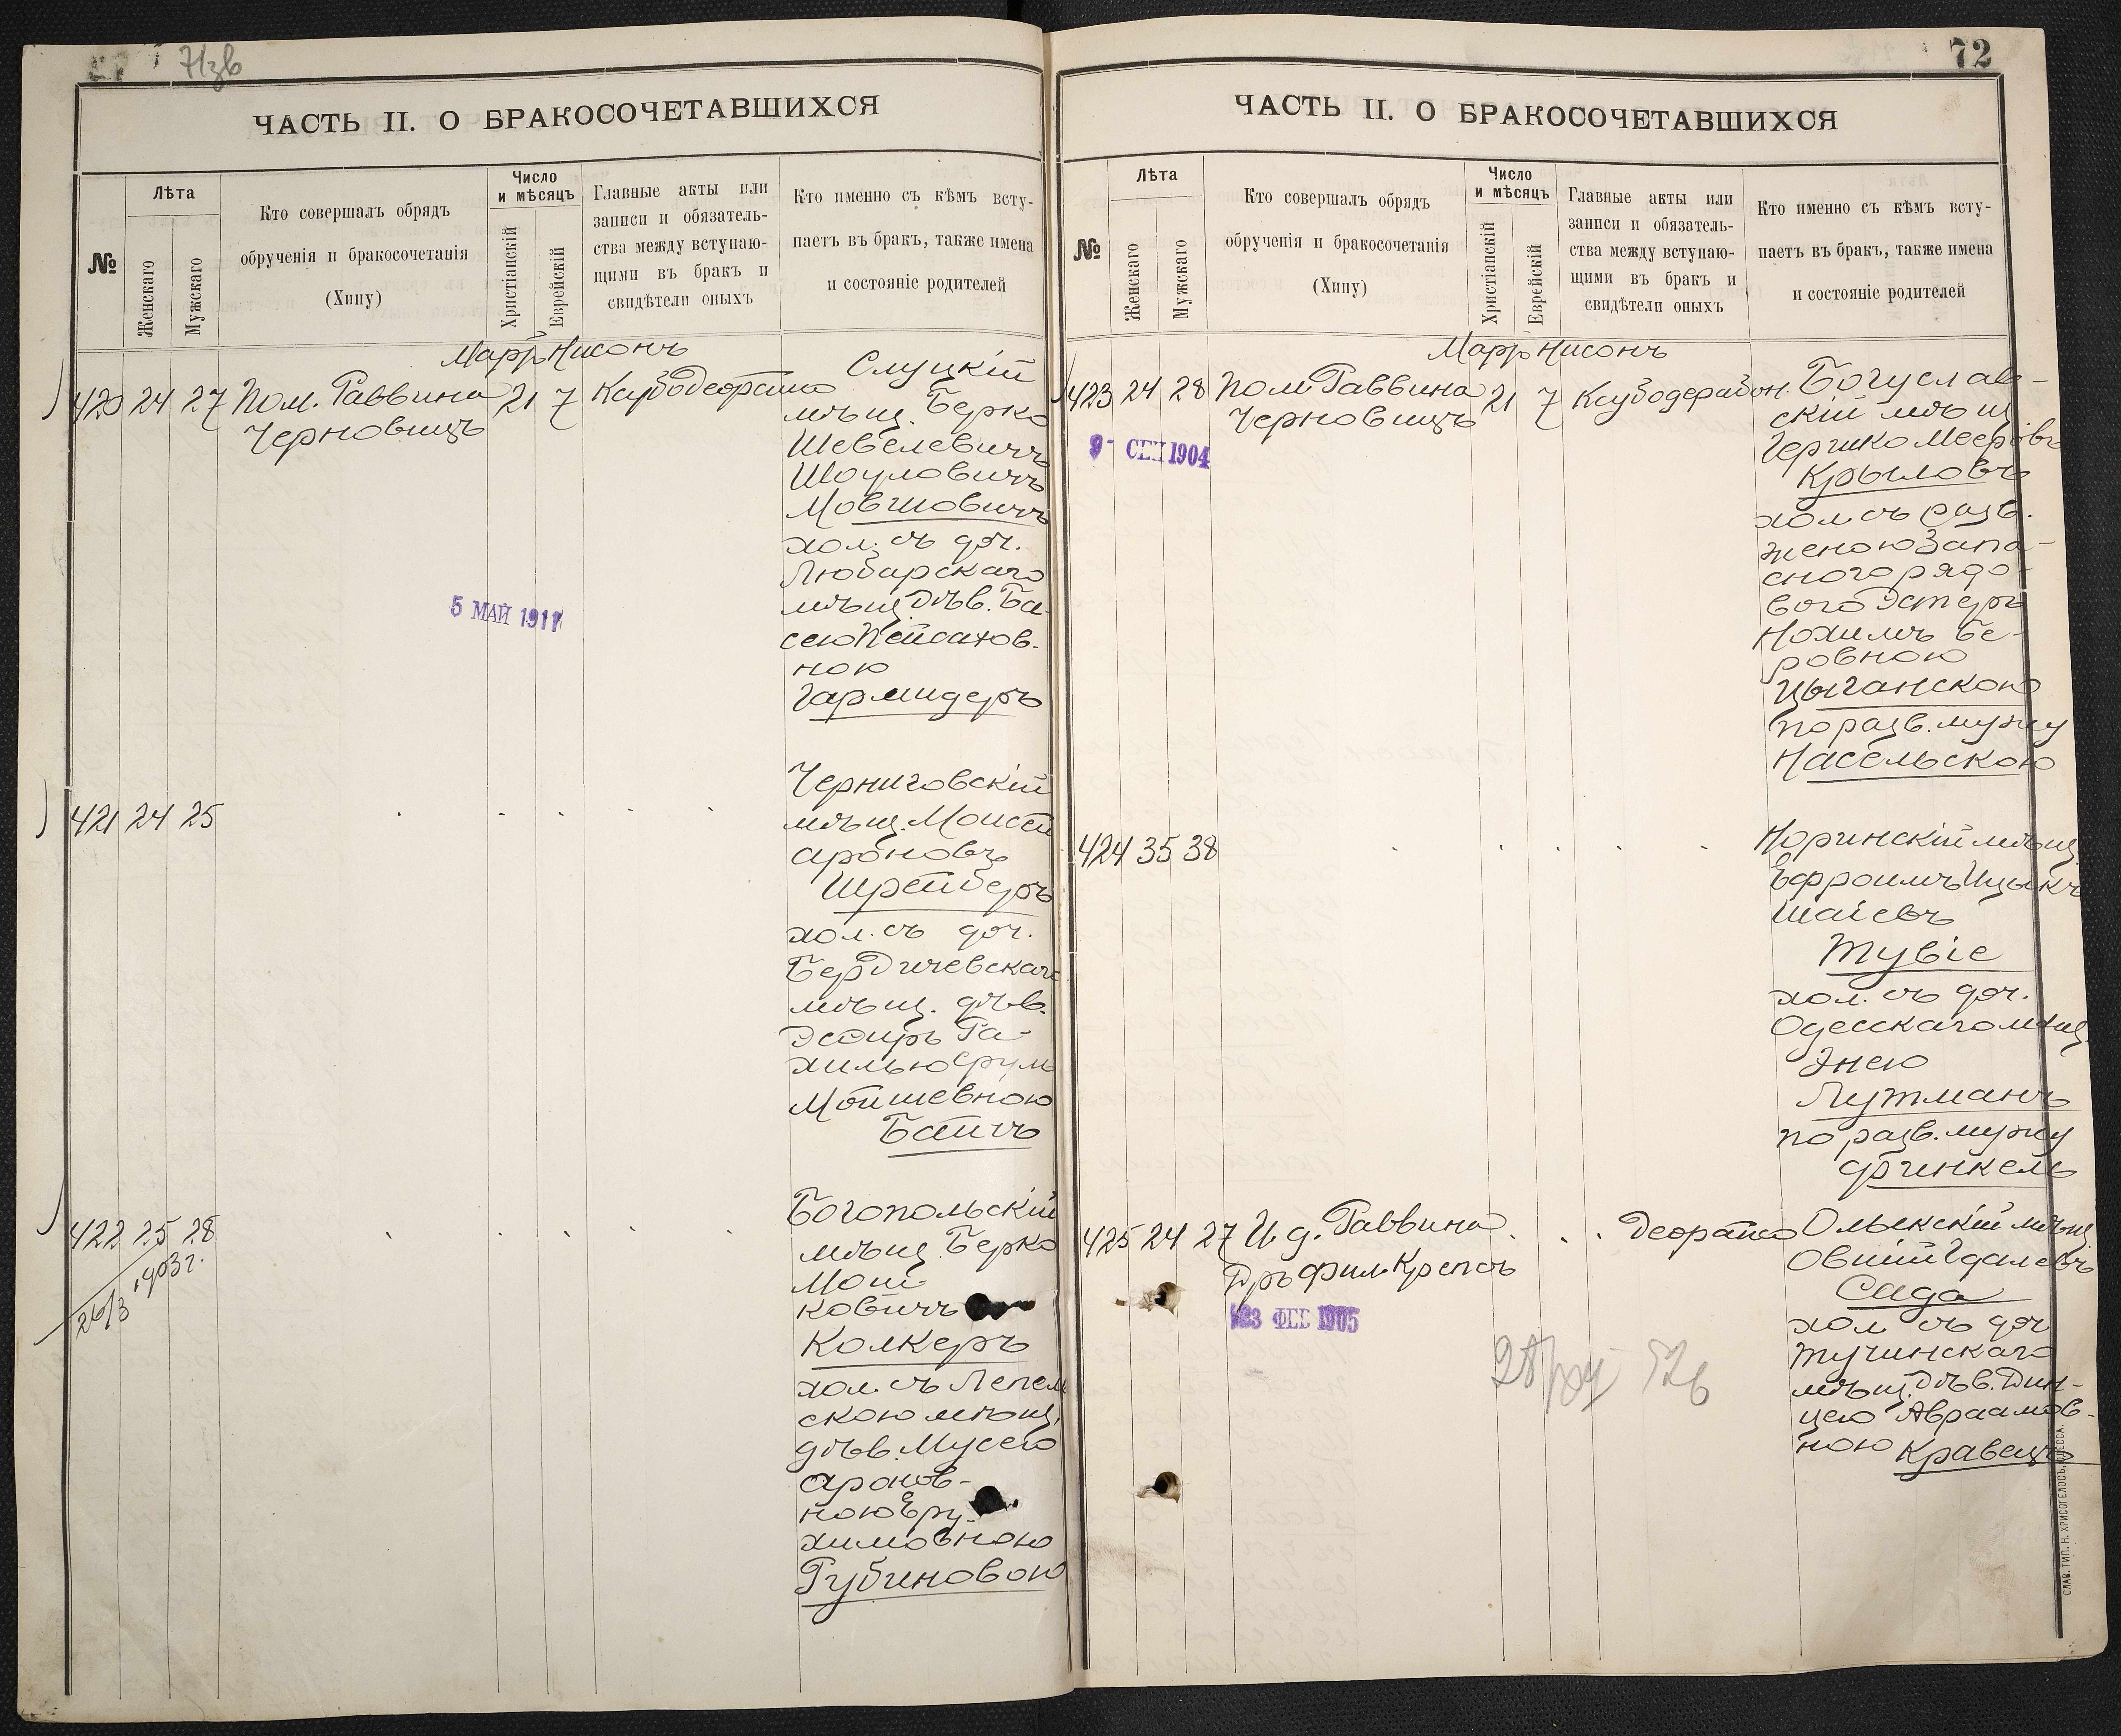 71зв
ЧАСТЬ II. О БРАКОСОЧЕТАВШИХСЯ
№
Лѣта
Женскаго
Мужскаго
Кто совершалъ обрядъ
обрученія и бракосочетанія
(Хипу)
Число
и мѣсяцъ
Христіанскій
Еврейскій
Главные акты или
записи и обязатель-
ства между вступаю-
щими въ бракъ и
свидѣтели оныхъ
Кто именно съ кѣмъ всту-
паетъ въ бракъ, также имена
и состояніе родителей
Мартъ Нисонъ
420 24 27 Пом. Раввина 21 7
Черновицъ
Слуцкій
мѣщ. Берко
Шевелевичъ
Шоуловичъ
Мовшовичъ
хол. съ доч.
Любарскаго
мѣщ. дѣв. Ба-
сею Пейсахов-
ною
Гармидеръ
5 МАЙ 1911
421 24 25
Черниговскій
мѣщ. Моисей
Ароновъ
Шрейберъ
хол. съ доч.
Бердичевскаго
мѣщ. дѣв.
Эсѳирь Ра-
хилью Срулъ
Мойшевною
Баичъ
422 25 28
26/3 1903 г.
Богопольскій
мѣщ. Берко
Мош
ковичъ
Колкеръ
хол. съ Лепель
скою мѣщ.
дѣв. Мусею
Аронов-
ною Еру-
химовною
Рубиновою
72
ЧАСТЬ II. О БРАКОСОЧЕТАВШИХСЯ
№
Лѣта
Женскаго
Мужскаго
Кто совершалъ обрядъ
обрученія и бракосочетанія
(Хипу)
Число
и мѣсяцъ
Христіанскій
Еврейскій
Главные акты или
записи и обязатель-
ства между вступаю-
щими въ бракъ и
свидѣтели оныхъ
Кто именно съ кѣмъ всту-
паетъ въ бракъ, также имена
и состояніе родителей
Мартъ Нисонъ
423 24 28 Пом. Раввина 21 7
Черновицъ
9 - СЕН 1904
Богуслав-
скій мѣщ
Гершко Мееровъ
Крыловъ
хол. съ разв.
женою запа-
сного рядо-
вого Эстеръ
Нохимъ Бе-
ровною
Цыганскою
по разв. мужу
Насельскою
424 35 38
Норинскій мѣщ.
Ефроимъ Ицыкъ
Шаіевъ
Тувіе
хол. съ доч.
Одесскаго мѣщ.
Энею
Лутманъ
по разв. мужу
Финкель
425 24 27 И. д. Раввина
Дръ Фил. Крепсъ
23 ФЕВ 1905
Олыкскій мѣщ.
Овшій Гдалевъ
Сида
хол съ доч
Тучинскаго
мѣщ. дѣв. Дин-
цею Авраамов-
ною Кравецъ
СЛАВ. ТИП. Н. ХРИСОГЕЛОСЪ, ОДЕССА.